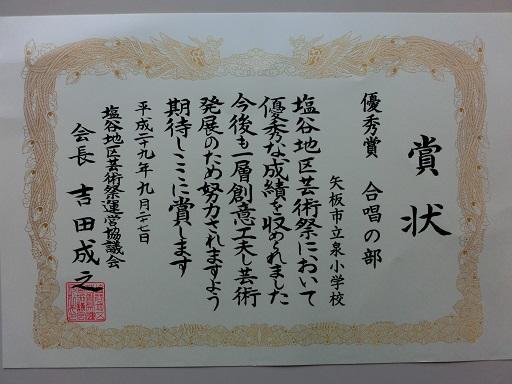 賞状
優秀賞 合唱の部
矢板市立泉小学校
塩谷地区芸術祭において
優秀な成績を収められました
今後も一層創意工夫し芸術
発展のため努力されますよう
期待しここに賞します
平成二十九年九月二七日
塩谷地区芸術祭運営協議会
会長 吉田成之